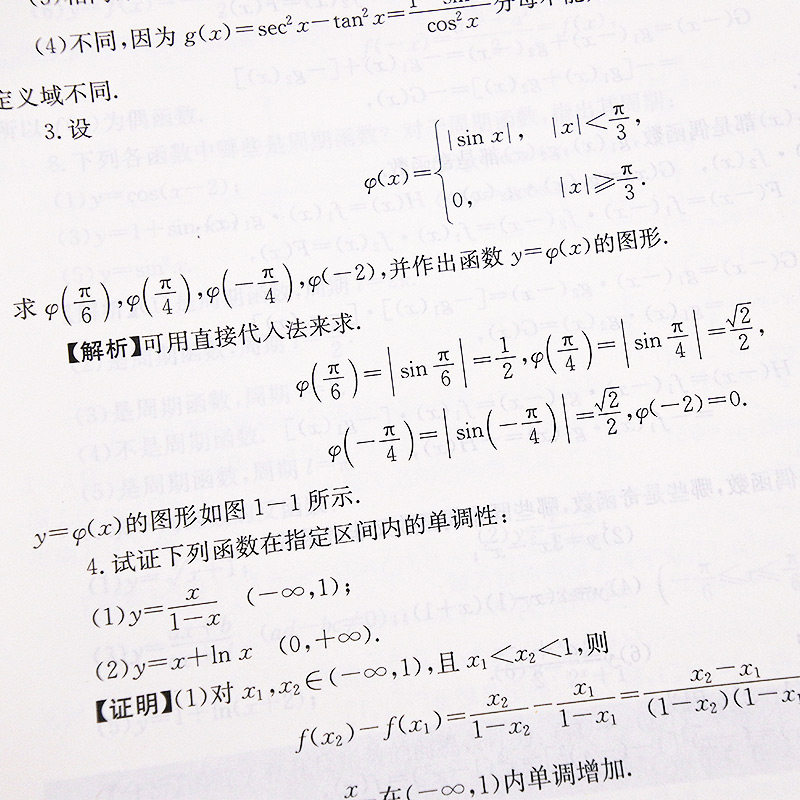 (4)不同,因为 g(x)=sec²x−tan²x=
cos²x
定义域不同.
3. 设
φ(x)={|sin x|, |x|<π/3,
0, |x|≥π/3.
求 φ(π/6),φ(π/4),φ(−π/4),φ(−2),并作出函数 y=φ(x)的图形.
【解析】可用直接代入法来求.
φ(π/6)=|sin π/6|=1/2,φ(π/4)=|sin π/4|=√2/2,
φ(−π/4)=|sin(−π/4)|=√2/2,φ(−2)=0.
y=φ(x)的图形如图 1−1 所示.
4. 试证下列函数在指定区间内的单调性:
(1)y=x/(1−x) (−∞,1);
(2)y=x+ln x (0,+∞).
【证明】(1)对 x₁,x₂∈(−∞,1),且 x₁<x₂<1,则
f(x₂)−f(x₁)=x₂/(1−x₂)−x₁/(1−x₁)=(x₂−x₁)/(1−x₂)(1−x₁
x 在(−∞,1)内单调增加.